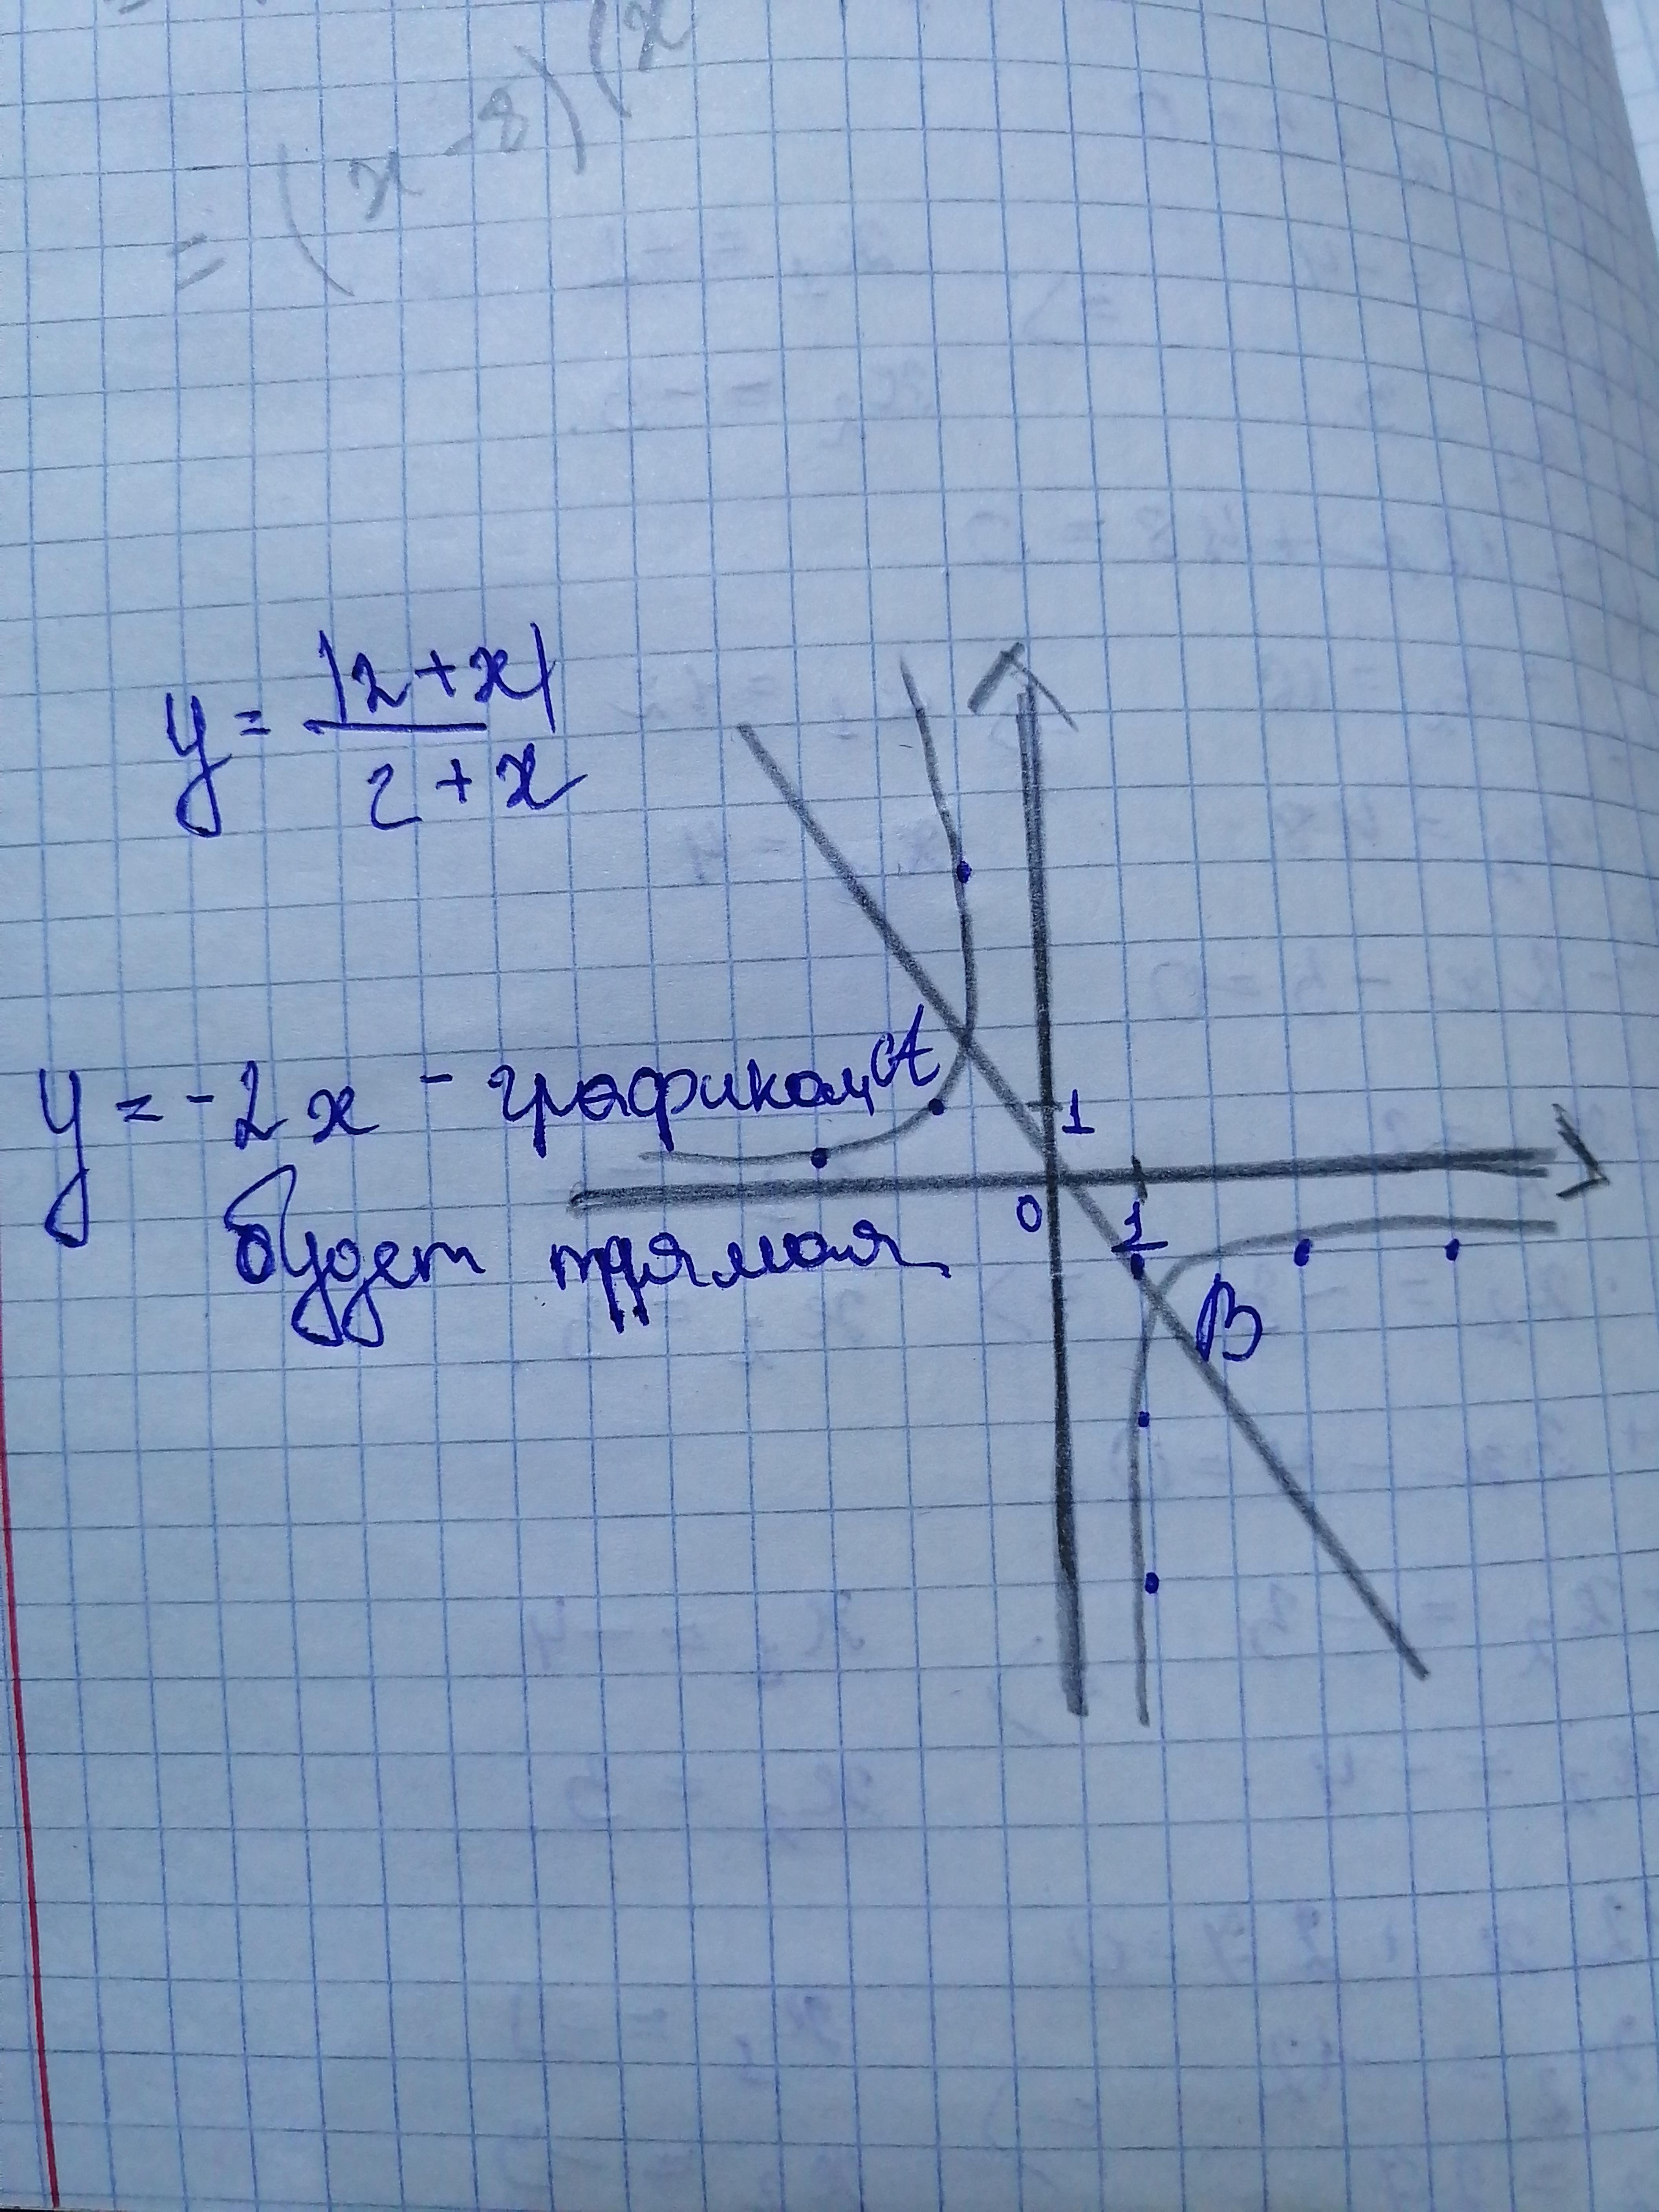 = (x - 8)(x
y = |2 + x|
2 + x
y = -2x - графиком
будет прямая
A
1
0
1
B